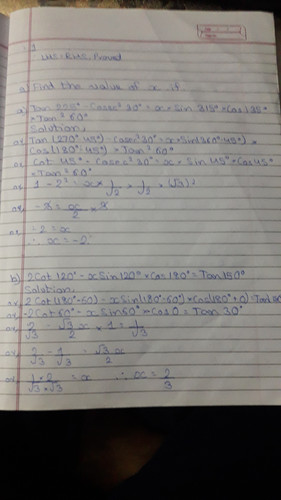 LHS=RHS Proved
a) Find the value of x if
a) Tan 225° - Cosec² 30° = x × Sin 315° × Cos 135°
× Tan² 60°
Solution,
or, Tan (270° - 45°) - Cosec² 30° = x × Sin (360° - 45°) ×
Cos (180° - 45°) × Tan² 60°
or, Cot 45° - Cosec² 30° = x × Sin 45° × Cos 45°
× Tan² 60°
or, 1 - 2² = x × 1/√2 × 1/√2 × (√3)²
= x/2 ×
or, -2 = x
∴ x = -2
b) 2 Cot 120° - x Sin 120° × Cos 180° = Tan 150°
Solution,
or, 2 Cot (180° - 60) - x Sin (180° - 60°) × Cos (180° + 0) =
or, -2 Cot 60° - x Sin 60° × - Cos 0 = Tan 30°
or, 2/√3 - √3/2 x × 1 = 1/√3
or, 2/√3 - 1/√3 = √3/2 x
or, 1/√3 × 2/√3 = x ∴ x = 2/3